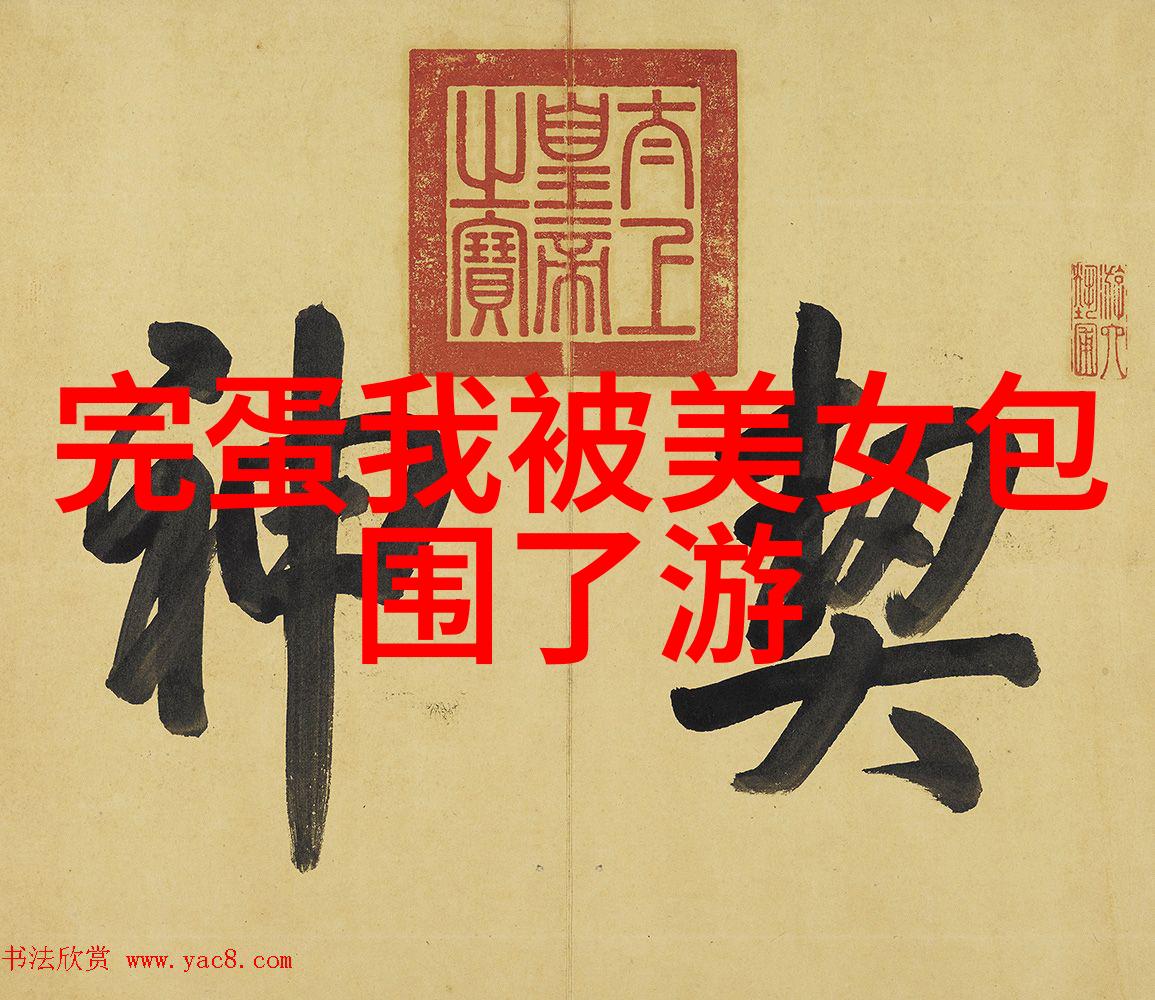 太上
皇帝
之寶
游六
藝圃
契神
完蛋我被美女包
围了游
书法欣赏 www.yac8.com